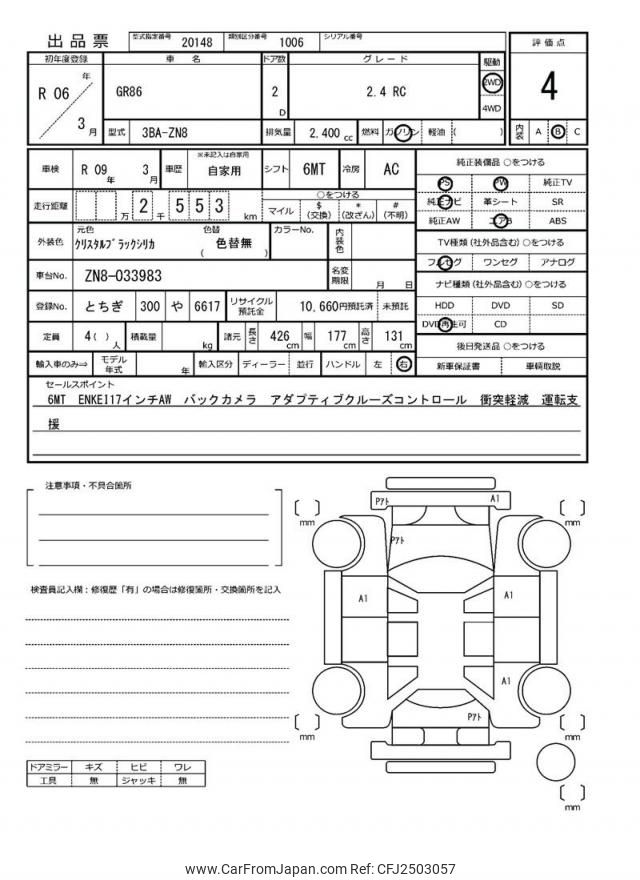 出品票 型式指定番号 20148 類別区分番号 1006 シリアル番号
初年度登録 車名 ドア数 グレード 駆動 評価点
R 06 年 3 月 GR86 2 D 2.4 RC 2WD 4WD 4
型式 3BA-ZN8 排気量 2,400 cc 燃料 ガソリン 軽油 ( ) 内装 A B C
車検 R 09 年 3 月 車歴 ※未記入は自家用 自家用 シフト 6MT 冷房 AC 純正装備品 ○をつける
PS PW 純正TV
走行距離 万 2 千 5 5 3 km ○をつける 純正ナビ 革シート SR
マイル $ (交換) * (改ざん) # (不明) 純正AW エアB ABS
外装色 元色 クリスタルブラックシリカ 色替 色替無 ( ) カラーNo. 内装色 TV種類(社外品含む)○をつける
フルセグ ワンセグ アナログ
車台No. ZN8-033983 名変期限 月 日 ナビ種類(社外品含む)○をつける
登録No. とちぎ 300 や 6617 リサイクル預託金 10,660円預託済 未預託 HDD DVD SD
定員 4 ( ) 人 積載量 kg 諸元 長さ 426 cm 幅 177 cm 高さ 131 cm DVD再生可 CD
後日発送品 ○をつける
輸入車のみ⇒ モデル年式 年 輸入区分 ディーラー 並行 ハンドル 左 右 新車保証書 車輌取説
セールスポイント
6MT ENKEI17インチAW バックカメラ アダプティブクルーズコントロール 衝突軽減 運転支
援
注意事項・不具合箇所
検査員記入欄:修復歴「有」の場合は修復箇所・交換箇所を記入
ドアミラー キズ ヒビ ワレ
工具 無 ジャッキ 無
Pアト A1
mm mm
Pアト
A1 A1
A1
Pアト
mm mm
mm
www.CarFromJapan.com Ref: CFJ2503057